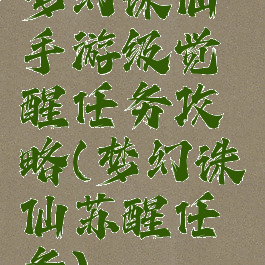 梦幻诛仙
手游级觉
醒任务攻
略(梦幻诛
仙苏醒任
务)